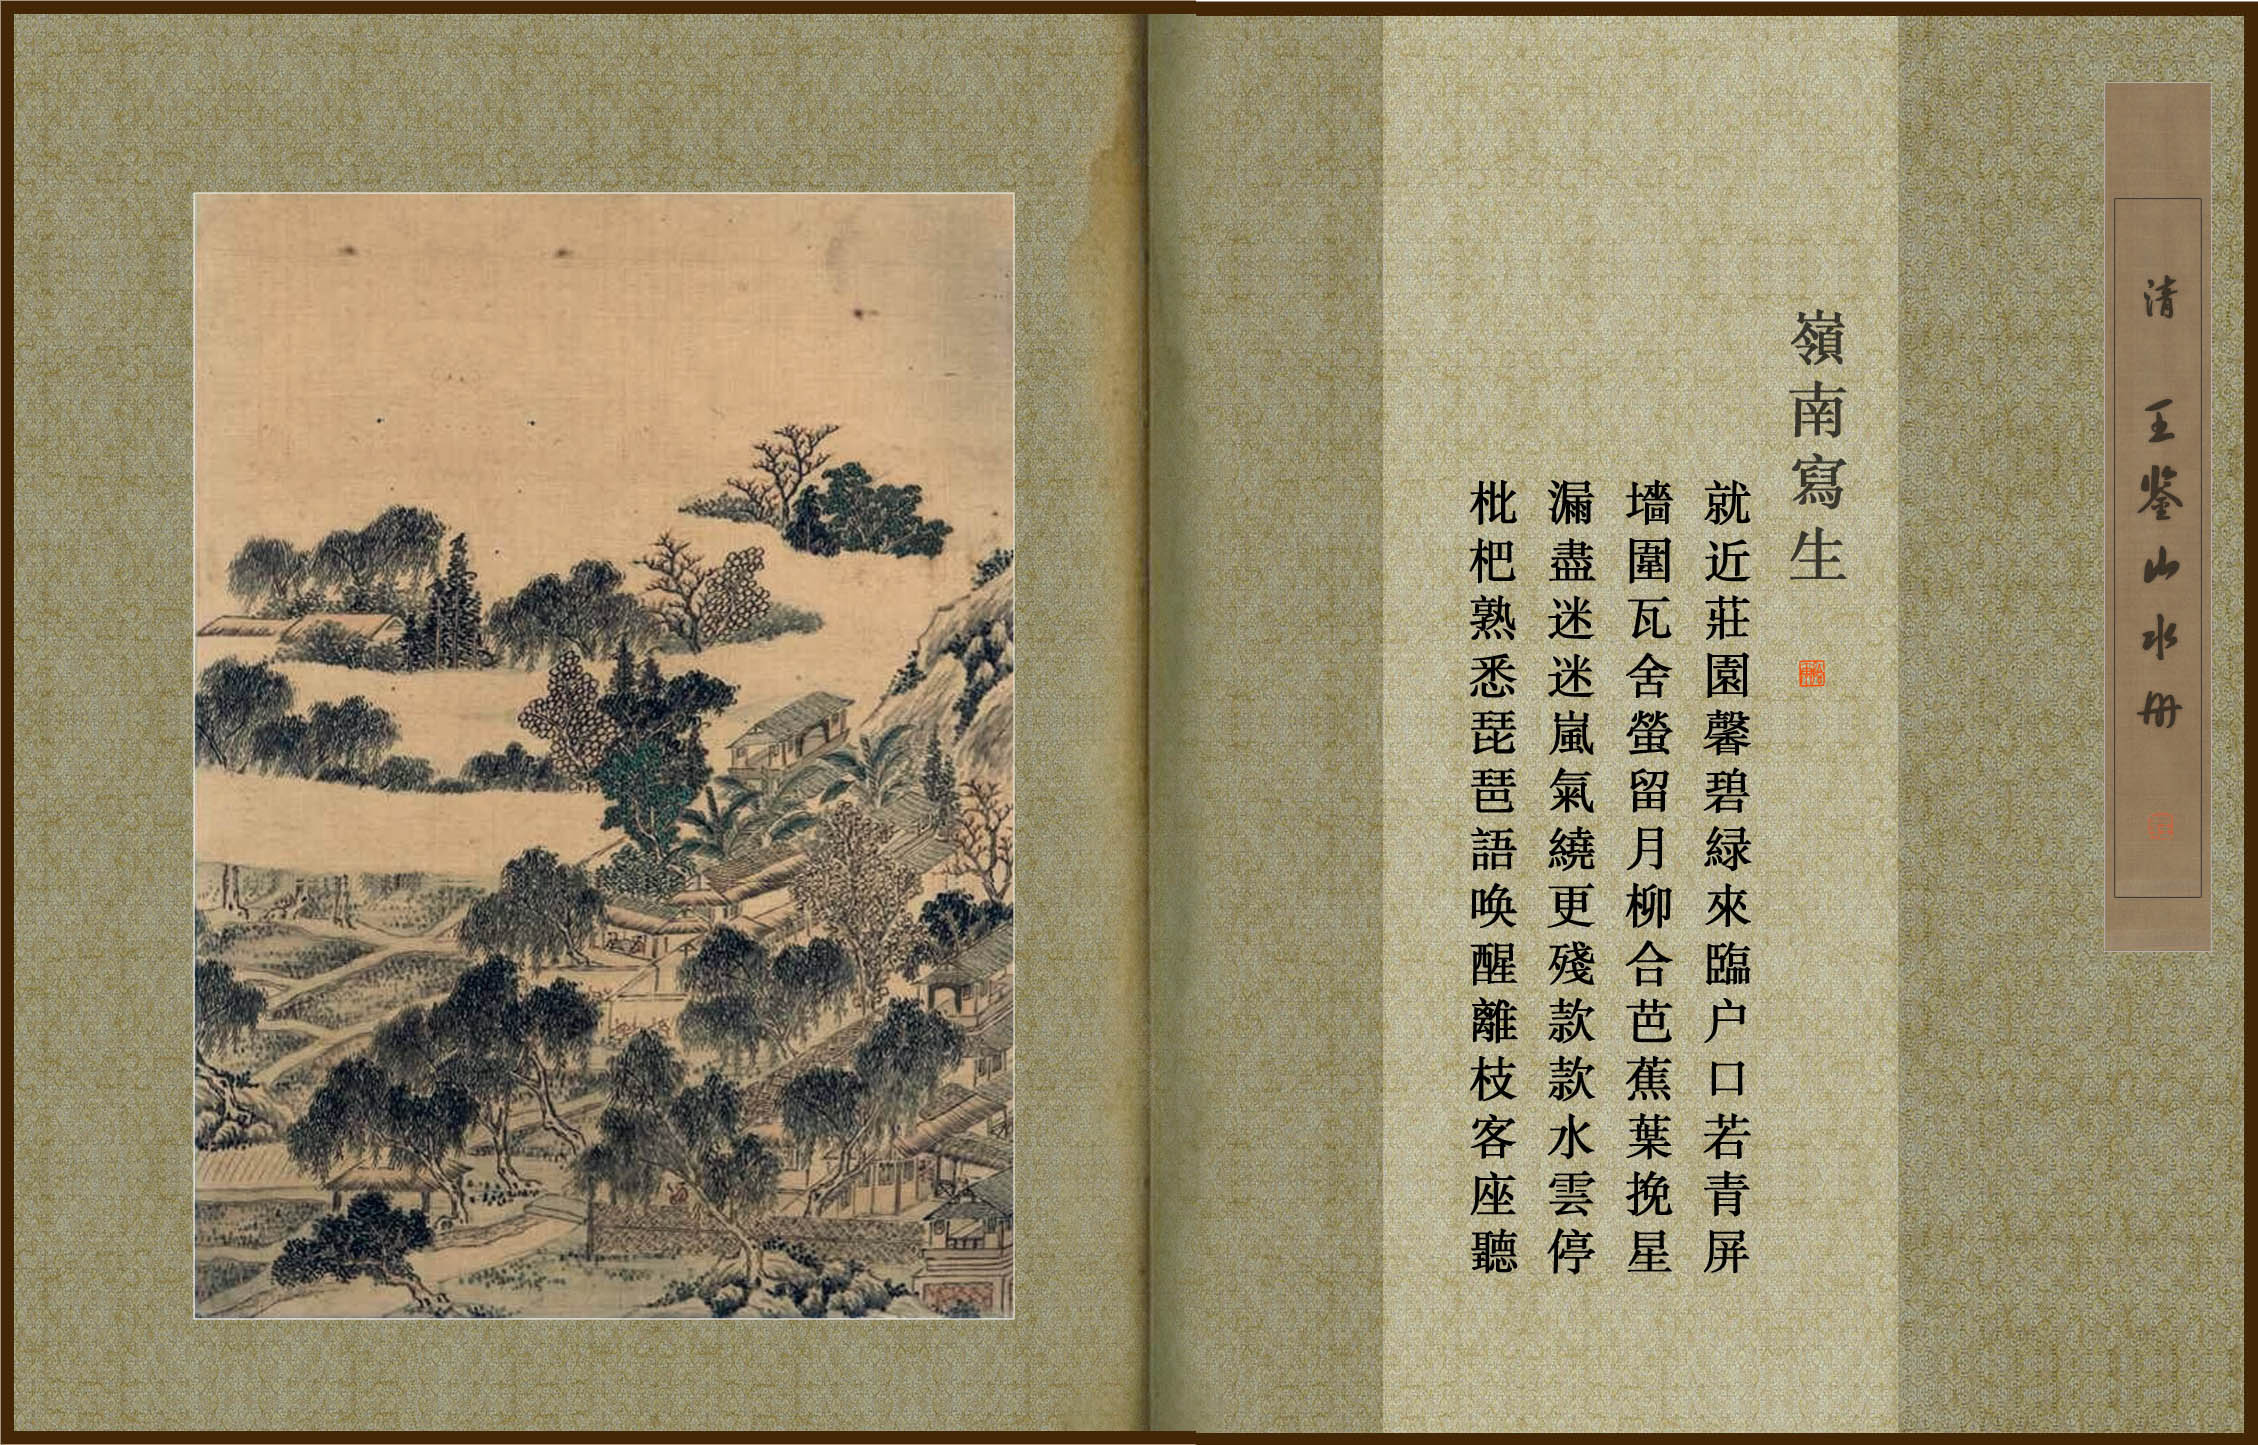 清 王鉴山水册
嶺南寫生
就近莊園馨碧緑來臨户口若青屏
墻圍瓦舍螢留月柳合芭蕉葉挽星
漏盡迷迷嵐氣繞更殘款款水雲停
枇杷熟悉琵琶語唤醒離枝客座聽